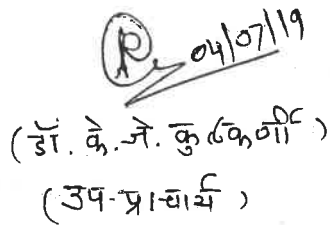 04/07/19
(डॉ. के. जे. कुलकर्णी)
(उप-प्राचार्य)